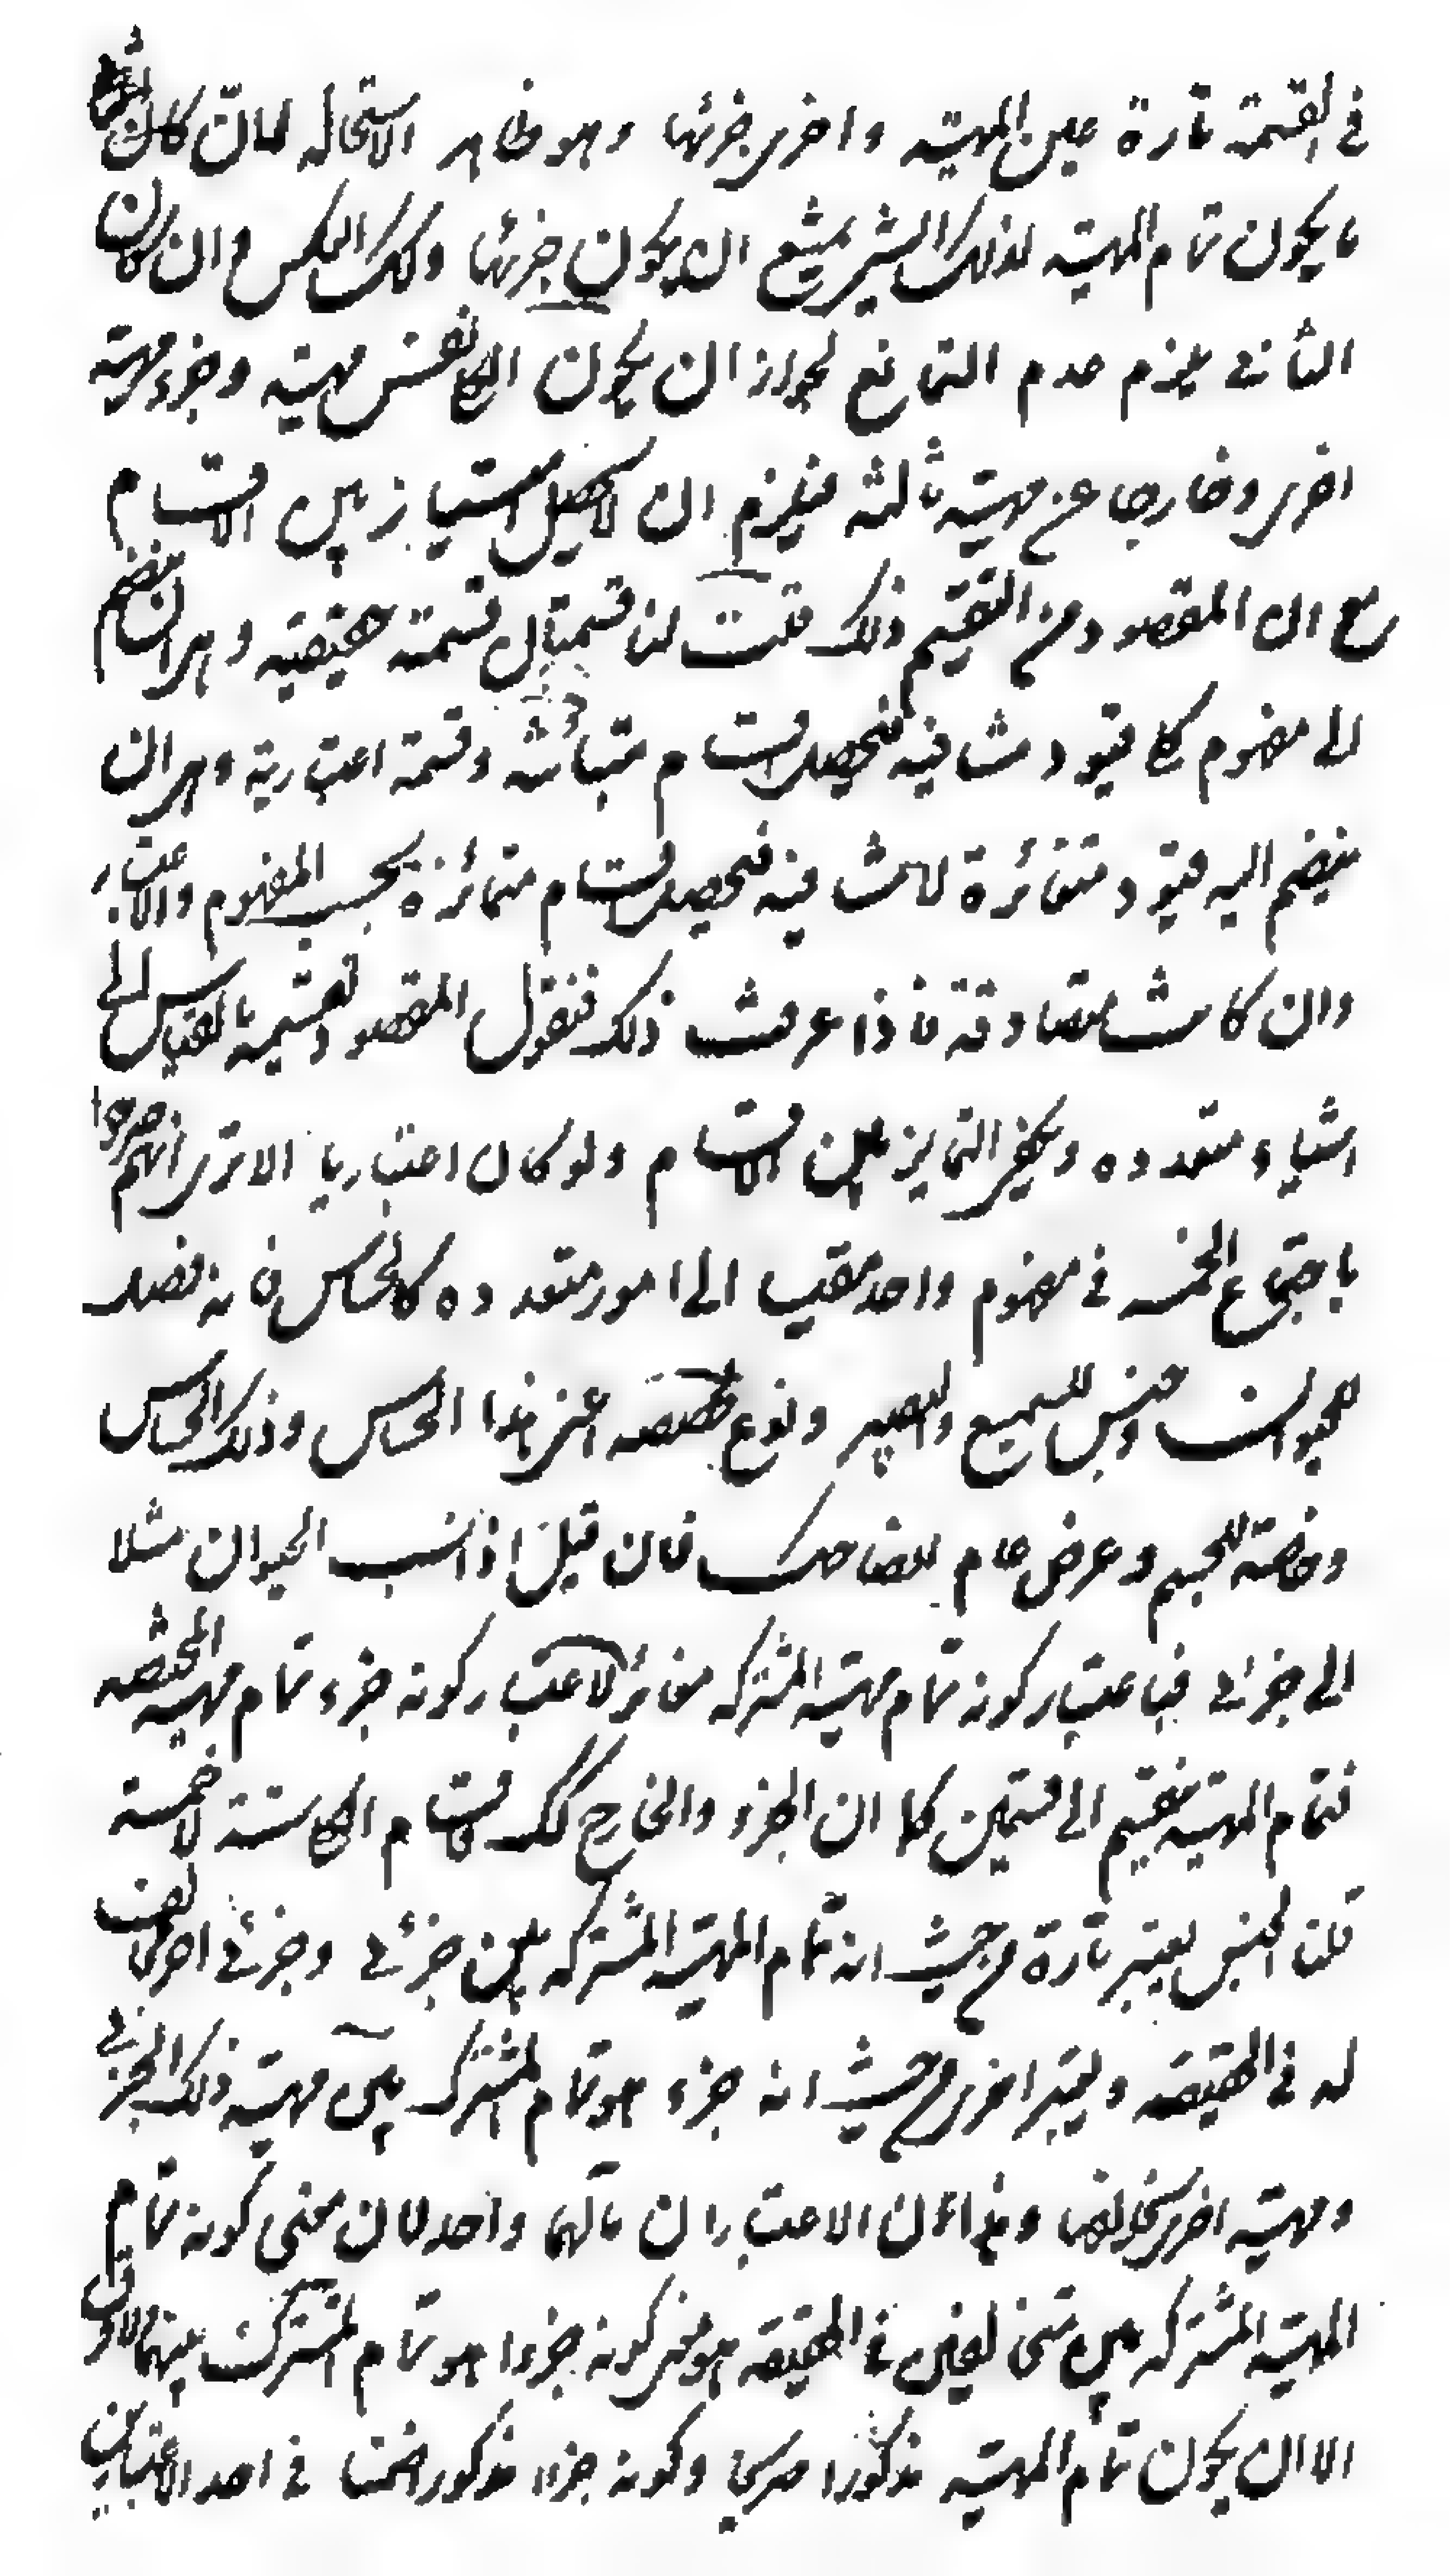 في القسمة تارة عين المهية واخرى جزئها وهو ظاهر الاستحالة لان كل
ما يكون تمام المهية لذلك الشئ يمتنع ان يكون جزئها وكك العكس وان كان
الثاني يلزم عدم التمانع لجواز ان يكون الكلي نفس مهية وجزء مهية
اخرى وخارجا عن مهية ثالثة فيلزم ان لا يحصل امتياز بين الاقسام
مع ان المقصود من التقسيم ذلك قلت لنا قسمتان قسمة حقيقية وهي ان ينضم
الى مفهوم كلي قيود متنافية فيحصل اقسام متباينة وقسمة اعتبارية وهي ان
ينضم اليه قيود متغائرة لا متنافية فيحصل اقسام متمائزة بحسب المفهوم والاعتبار
وان كانت متصادقة فاذا عرفت ذلك فنقول المقصود تقسيمه بالقياس الى
اشياء متعددة ويكفي التمايز بين الاقسام ولو كان اعتباريا الا ترى انهم صرحوا
باجتماع الخمسة في مفهوم واحد مقيسا الى امور متعددة كالحساس فانه فصل
للحيوان وجنس للسميع والبصير ونوع لحصصه اعني هذا الحساس وذلك الحساس
وخاصة للجسم وعرض عام للضاحك فان قيل اذا نسب الحيوان مثلا
الى جزئي فباعتبار كونه تمام مهية المشتركة مغائر لاعتبار كونه جزء تمام مهية المختصة
فتمام المهية ينقسم الى قسمين كما ان الجزء والخارج كك فاقسام الكلي ستة لا خمسة
قلنا الجنس يعتبر تارة من حيث انه تمام المهية المشتركة بين جزئي وجزئي اخر مخالف
له في الحقيقة ويعتبر اخرى من حيث انه جزء هو تمام المشترك بين مهية ذلك الجزئي
ومهية اخرى تخالفها وهذان الاعتباران مآلهما واحد لان معنى كونه تمام
المهية المشتركة بين متخالفين في الحقيقة هو معنى كونه جزءا هو تمام المشترك بينهما لا فرق
الا ان يكون تمام المهية مذكورا صريحا وكونه جزءا مذكورا ضمنا في احد الاعتبارين